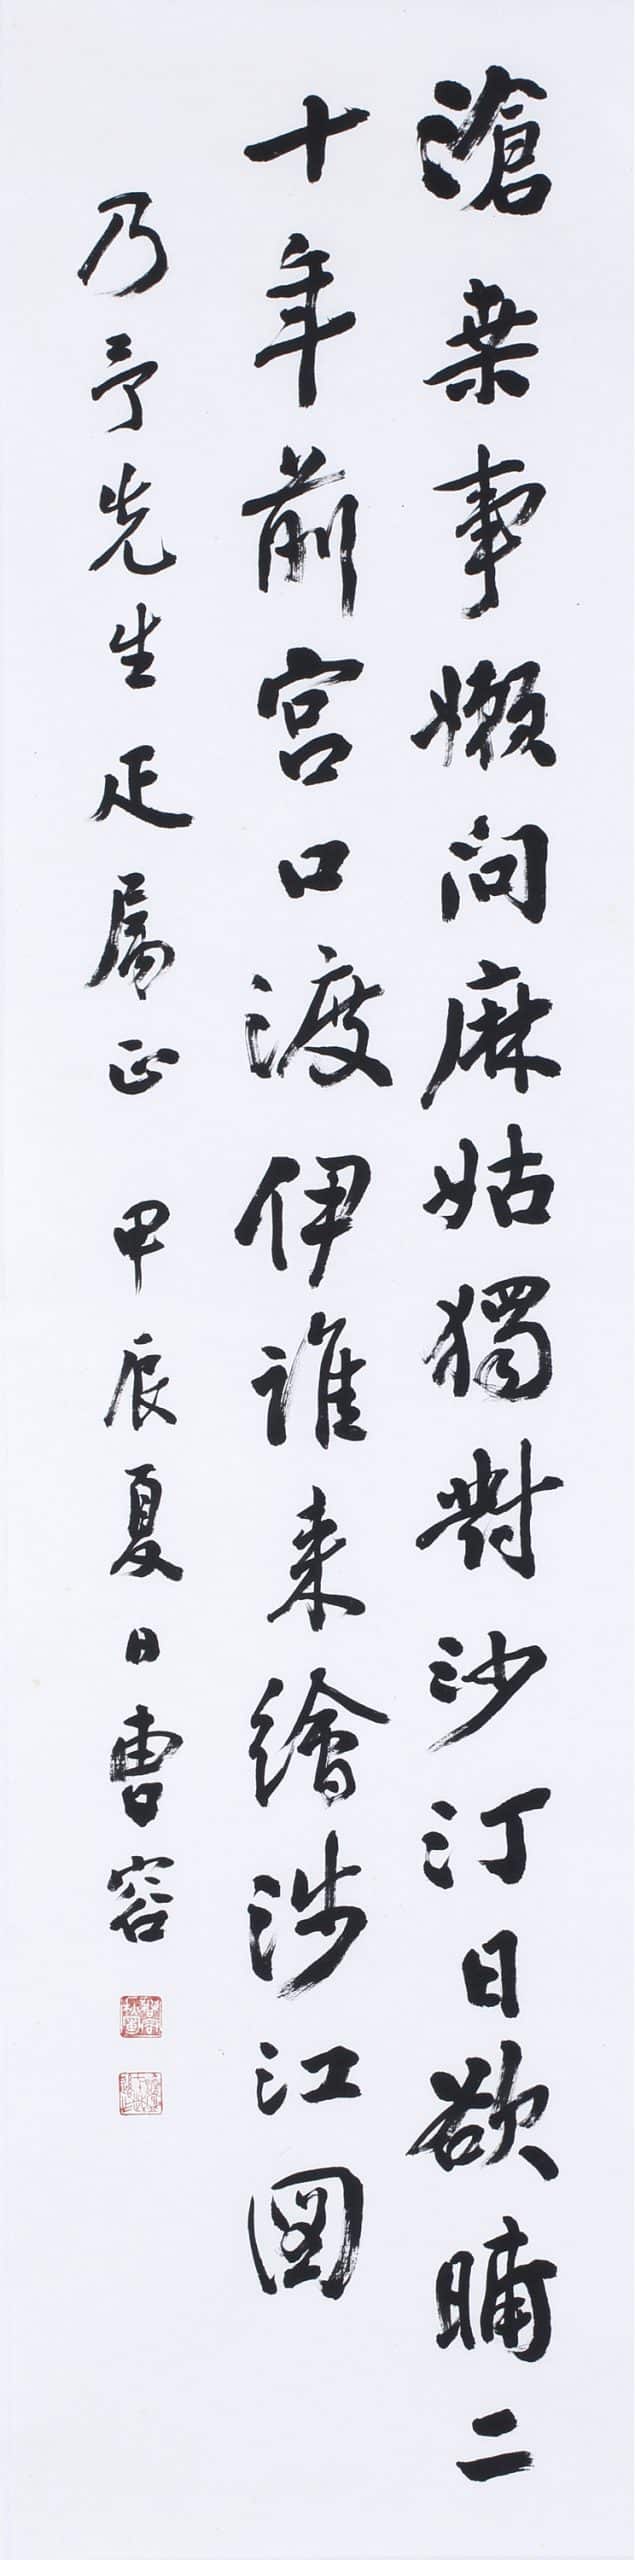 滄桒事懶問麻姑獨對沙汀日欲晡二
十年前宮口渡伊誰来繪涉江圖
乃予先生疋属正 甲辰夏日曹容